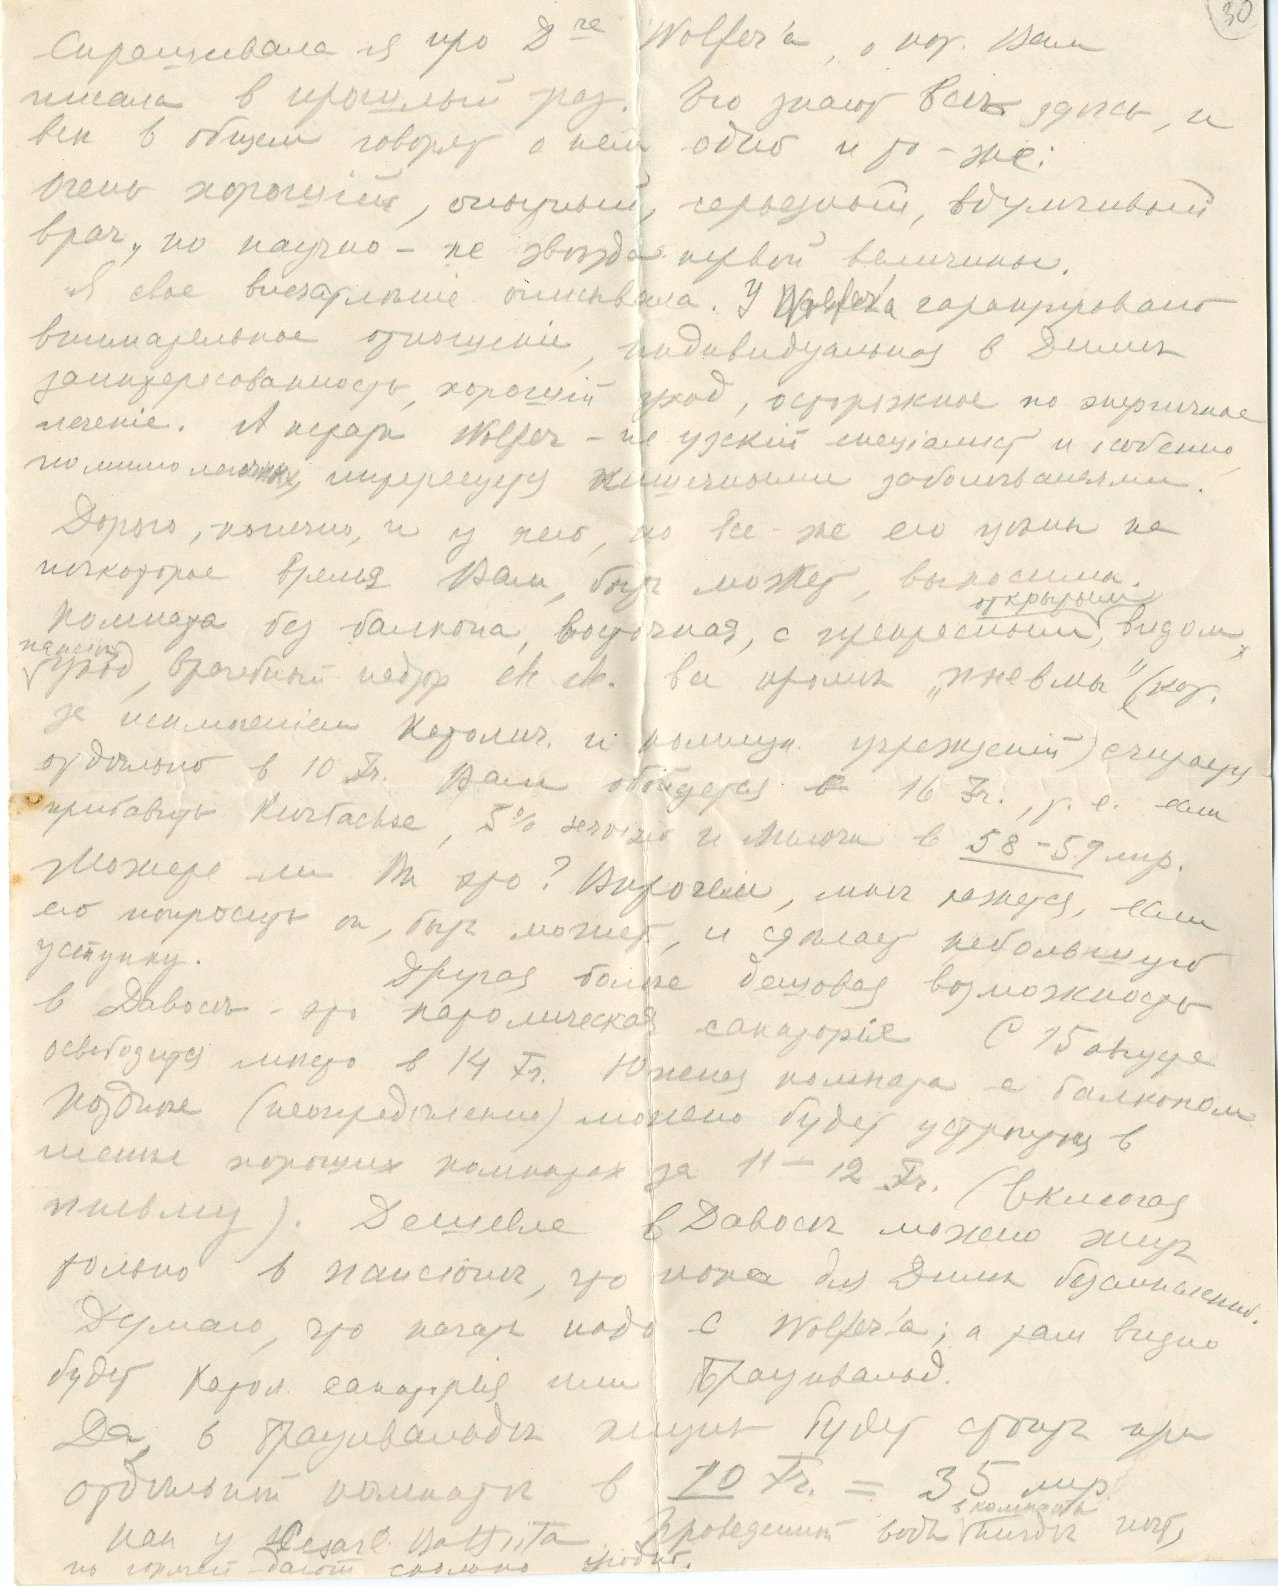 30
Спрашивала я про Dre Wolfer'а, о кот. Вам
писала в прошлый раз. Его знают всѣ здѣсь, и
всѣ в общем говорят о нем одно и то-же:
Очень хорошій, опытный, серьезный, вдумчивый
врач, но научно – не звѣзда первой величины.
Я свое впечатлѣніе описывала. У Wolfer'а гарантировано
внимательное отношеніе, индивидуальная в Димѣ
заинтересованность, хорошій уход, осторожное но энергичное
леченіе. А кстати Wolfer – не узкій спеціалист и особенно,
помимо легочных, интересуется кишечными заболѣваніями.
Дорого, конечно, и у него, но все-же его цѣны на
нѣкоторое время Вам, быть может, выносимы.
Комната без балкона, восточная, с прекрасным, открытым видом,
пансіон, уход, врачебный надзор etc. etc. все кромѣ „пневмы" (кот.
за исключеніем католич. и коммун. учрежденій) считается
отдѣльно в 10 Fr. Вам обойдется в 16 Fr., т. е. если
прибавить Kurtachse, 5% и мелочи в 58–59 лир.
Можете ли Вы это? Впрочем, мнѣ кажется, если
его попросить он, быть может, и сдѣлает небольшую
уступку.
Другая болѣе дешовая возможность
в Давосѣ – это католическая санаторія С 15 августа
освободится мѣсто в 14 Fr. Южная комната с балконом
Позднѣе (неопредѣленно) можно будет устроиться в
менѣе хороших комнатах за 11 – 12 Fr. (включая
пневму). Дешевле в Давосѣ можно жить
только в пансіонѣ, что пока для Димы безсмысленно.
Думаю, что начать надо с Wolfer'а; а там видно
будет Катол. санаторія или Браунвальд.
Да, в Браунвальдѣ жизнь будет стоить при
отдѣльной комнатѣ в 10 Fr. = 35 лир
как у Cesare Battista. Проведенной воды в комнатѣ нигдѣ нѣт,
но горячей дают сколько угодно.